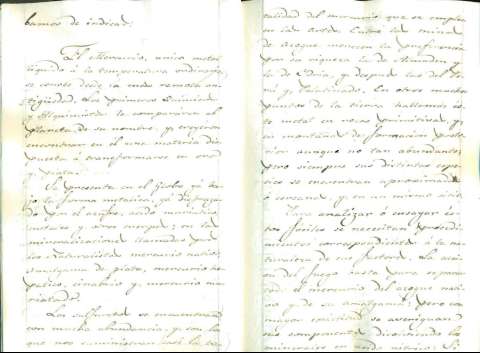 bamos de indicar.
El Mercurio, unico metal
liquido á la temperatura ordinaria,
se conoce desde la mas remota an-
tigüedad. Los primeros Quimicos
y Alquimistas le compararon al
Planeta de su nombre, y creyeron
encontrar en el una materia dis-
puesta á transformarse en oro
y plata.
Se presenta en el Globo, yá ba-
jo la forma metalica, yá
por el azufre, acido muriatico
y otros cuerpos; en las
mineralizaciones llamadas por
los Naturalistas mercurio nativo,
amalgama de plata, mercurio he-
patico, cinabrio y mercurio mu-
riatado.
Los sulfuretos se encuentran
con mucha abundancia, y son los
que nos suministran casi la to-
talidad del mercurio que se emplea
en las artes. Entre las minas
de azogue merecen la preferencia
por su riqueza la de Almaden y
la de Idria, y despues las del Pe-
rú y Palatinado. En otros muchos
puntos de la tierra hallamos es-
te metal en rocas primitivas, y
en montañas de formacion poste-
rior aunque no tan abundante;
pero siempre sus distintas espe-
cies se encuentran aproximadas
ó cercanas, y en un mismo sitio.
Para analizar ó ensayar es-
tos fosiles se necesitan procedi-
mientos correspondientes á la na-
turaleza de sus factores. La acci-
on del fuego basta para separar
el mercurio del azogue nati-
vo y de su amalgama; pero con
mayor exactitud se averiguan
sus componentes disolviendo los
minerales en acido nitrico. Si